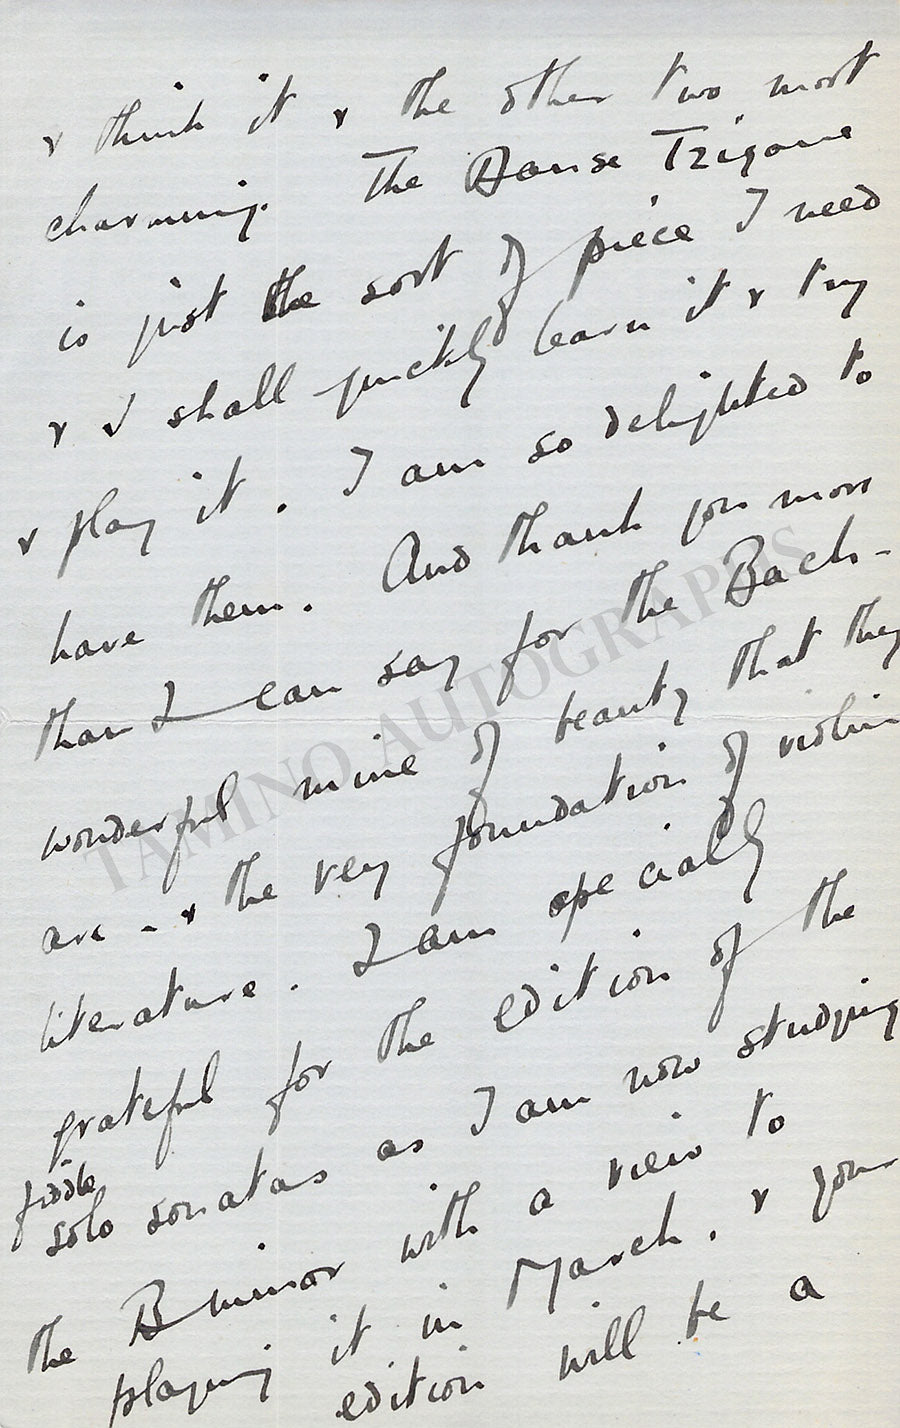 & think it & the other two most
charming. The Danse Tzigane
is just the sort of piece I need
& I shall quickly learn it & try
& play it. I am so delighted to
have them. And thank you more
than I can say for the Bach –
wonderful mine of beauty that they
are – & the very foundation of violin
literature. I am specially
grateful for the edition of the
fiddle
solo sonatas as I am now studying
the B minor with a view to
playing it in March. & your
edition will be a
TAMINO AUTOGRAPHS